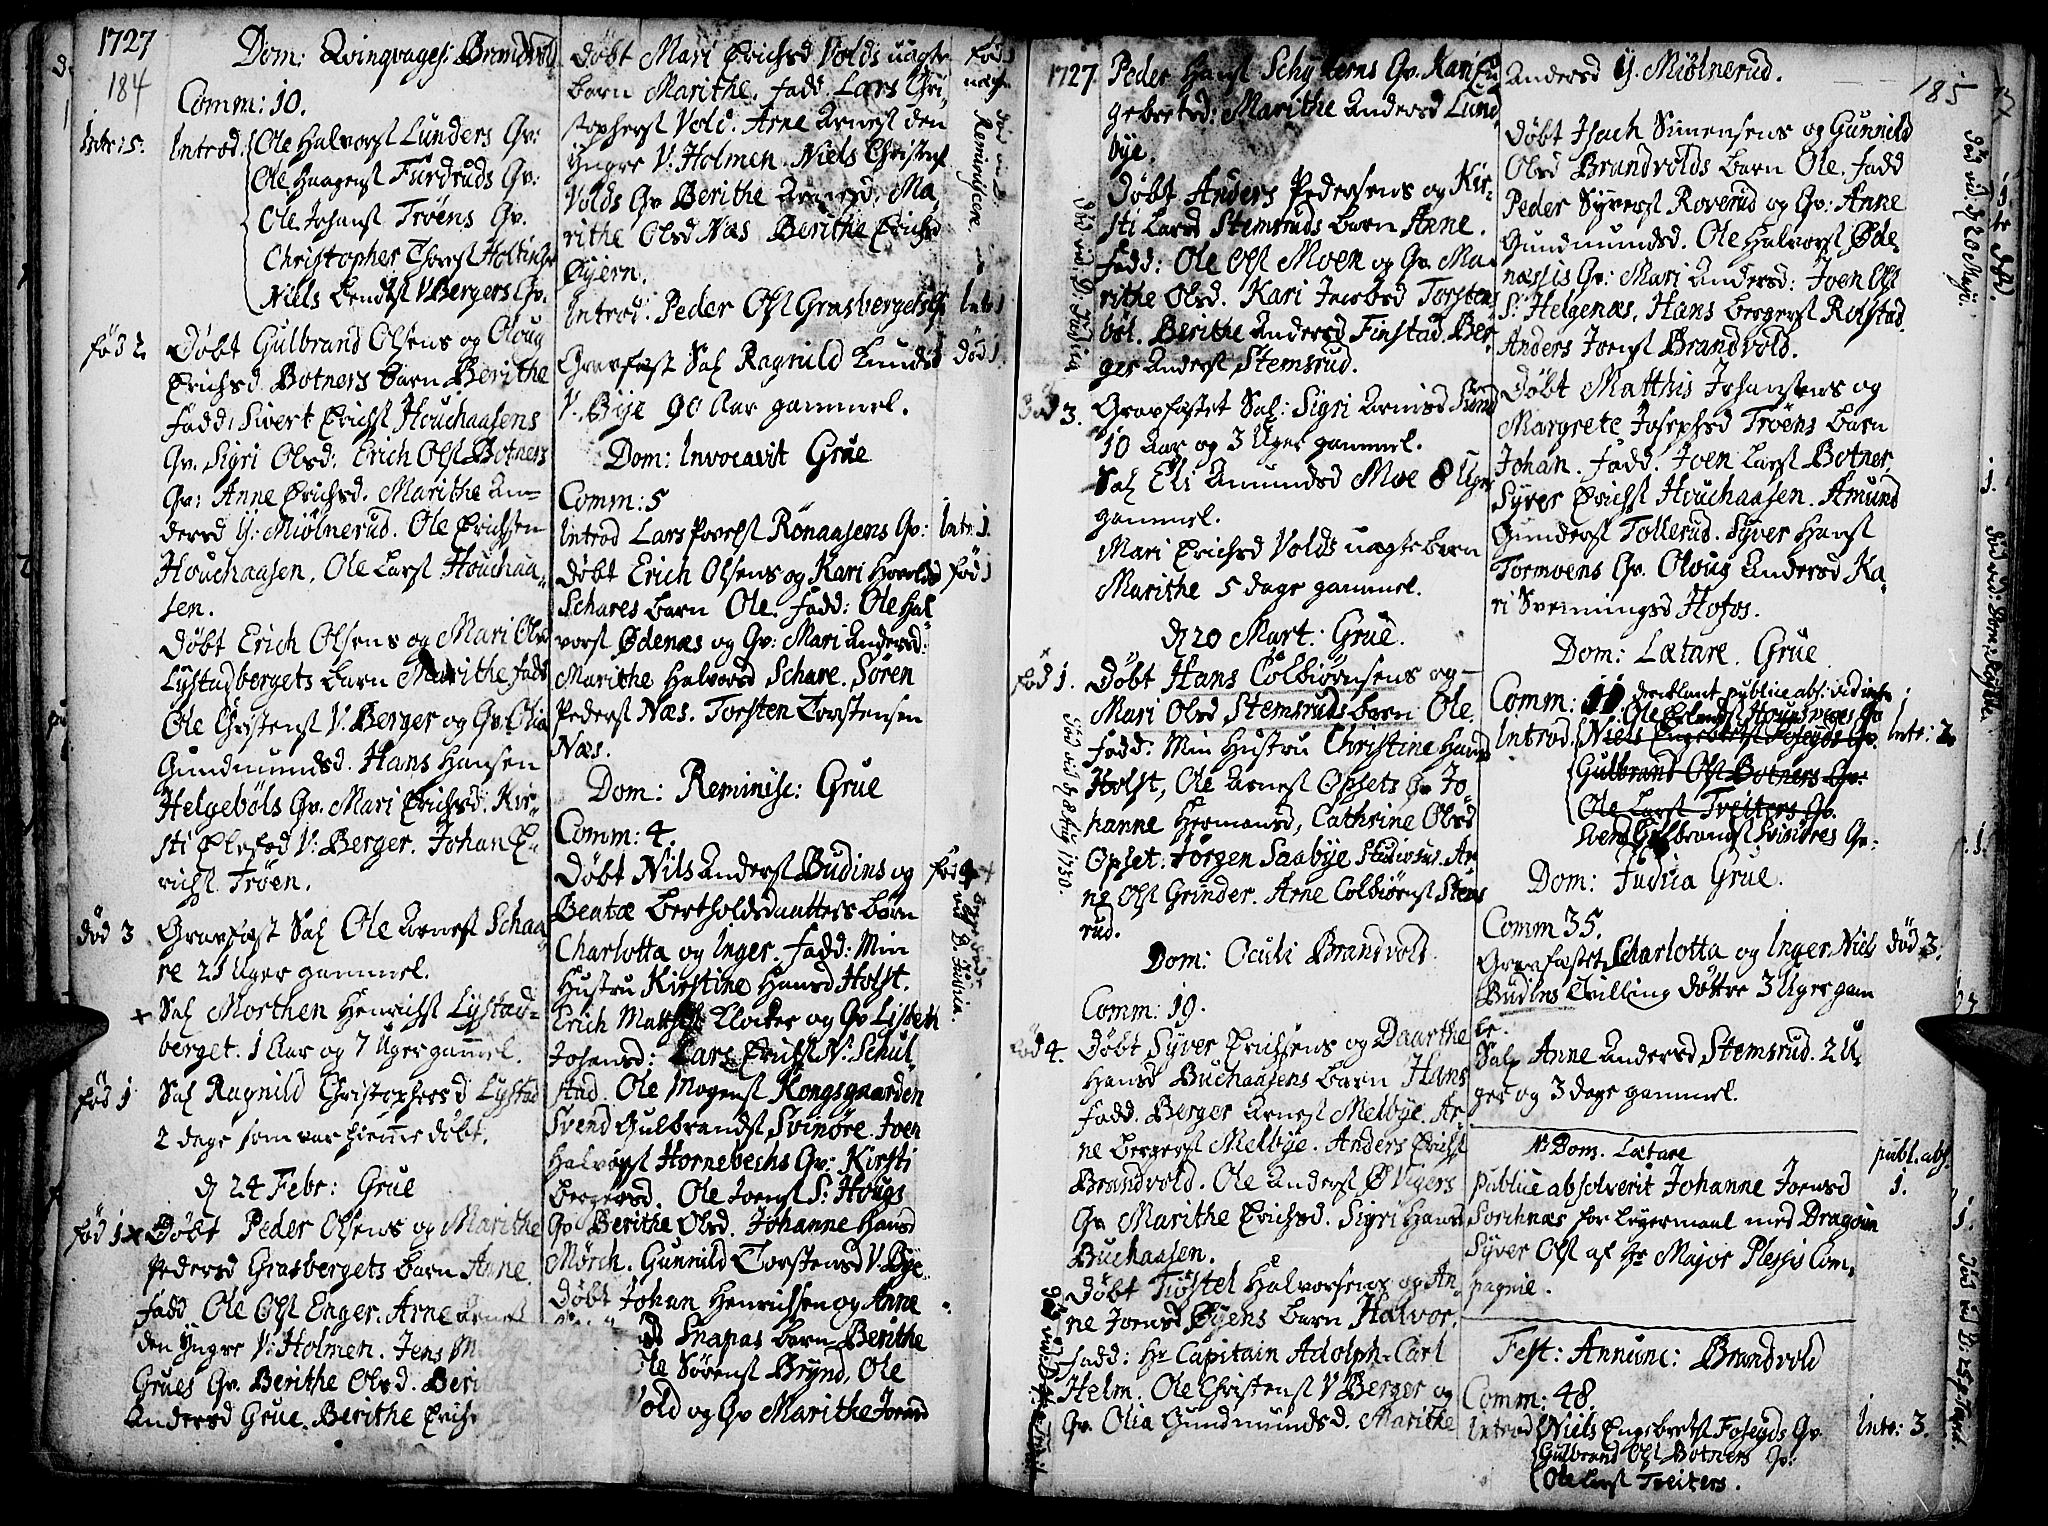 1727
184
Dom: Qvinqvages: Brandvold
Comm: 10.
Intr: 5.
Introd. Ole Halvorsſ Lunders Qv:
Ole Haagensſ Furderuds Qv:
Ole Johansſ Trøens Qv.
Christopher Thoresſ Holtings
Niels Bendtsſ V Bergers Qv.
fød 2.
Døbt Gulbrand Olsens og Oloug
Erichsd. Botners barn Berithe
Fadd. Sivert Erichsſ Houchaasens
Qv. Sigri Olsd: Erich Olsſ Botners
Qv: Anne Erichsd. Marithe An-
dersd Y: Miølnerud. Ole Erichsen
Houchaasen, Ole Larsſ Houchaa-
sen.
Døbt Erich Olsens og Mari Olsd
Lystadbergets barn Marithe fadd
Ole Christensſ V. Berger og Qv. Olia
Gundmundsd. Hans Hansen
Helgebøls Qv. Mari Erichsd. Kir-
sti Olefsd V: Berger. Johan E-
richsſ Trøen.
død 3
Gravfæst Sal Ole Arnesſ Schaa
re 21 Uger gammel.
Sal Morthen Henrichsſ Lystad-
berget. 1 Aar og 7 Uger gammel.
fød 1
Sal Ragnild Christophersd Lystad
2 dage som var hiemme døbt.
d 24 Febr: Grue
fød 1
Døbt Peder Olsens og Marithe
Pedersd Grasbergets barn Anne.
Fadd Ole Olsſ Enger. Arne Arnesſ
den Yngre V: Holmen. Jens
Grues Qv. Berithe Olsd.
Andersd Grue. Berithe
Døbt Mari Erichsd Volds uægte
barn Marithe. Fadd. Lars Chri-
stophersſ Vold. Arne Arnesſ den
Yngre V: Holmen. Niels Christensſ
Volds Qv Berithe Arnesd. Ma-
rithe Olsd Næs Berithe Erichsd
Øyern.
Introd: Peder Olsſ Grasbergets Qv
Intr 1
Gravfæst Sal Ragnild Knudsd
død 1.
V. Bye 90 Aar gammel.
Dom: Invocavit Grue
Comm: 5
Introd Lars Povelsſ Rønaasens Qv:
Intr: 1.
Døbt Erich Olsens og Kari Hovelsd
fød 1
Schares barn Ole. Fadd: Ole Hal-
vorsſ Ødenæs og Qv: Mari Andersd:
Marithe Halvorsd Schare. Søren
Pedersſ Næs. Torsten Torstensen
Næs.
Dom: Reminisc: Grue
Comm: 4.
Døbt Nils Andersſ Budins og
fød 4
Beatæ Bertholdsdaatters børn
Charlotta og Inger. Fadd: Min
Hustru Kirstine Hansd Holst.
Erich Matthisſ Klocker og Qv Lisbeth
Johansd: Lars Erichsſ N: Schul-
stad. Ole Mogensſ Kongsgaarden
Svend Gulbrandsſ Svinøre. Joen
Halvorsſ Hornebechs Qv: Kirsti
Bergersd. Ole Joensſ S: Hougs
Qv Berithe Olsd. Johanne Hansd
Mørch. Gunnild Torstensd V. Bye.
Døbt Johan Henrichsen og Anne
Snapas barn Berithe
Ole Sørensſ Brynd, Ole
Vold og Qv Marithe Joensd
1727
Peder Hansſ Schytterns Qv. Kari En
gebretsd: Marithe Andersd Lund
bye.
Døbt Anders Pedersens og Kir-
sti Larsd Stemsruds barn Anne.
Fadd: Ole Olsſ Moen og Qv. Ma-
rithe Olsd. Kari Jacobsd Torstens
bøl. Berithe Andersd Finstad. Ber-
ger Andersſ Stemsrud.
død 3.
Gravfæstet Sal: Sigri Arnisd Sund
10 Aar og 3 Uger gammel.
Sal Eli Amundsd Moe 8 Uger
gammel.
Mari Erichsd Volds uægte barn
Marithe 5 dage gammel.
d 20 Mart: Grue.
fød 1.
Døbt Hans Colbiørnsens og
Mari Olsd Stemsruds barn Ole.
Fadd: Min Hustru Christine Hansd
Holst, Ole Arnesſ Opsets Qv Jo
hanne Hermansd, Cathrine Olsd
Opset: Jørgen Saabye Studiosus. Ar
ne Olsſ Grinder. Arne Colbiørnsſ Stems
rud.
død vid d 8 Aug 1750.
Dom: Oculi Brandvold.
Comm: 19.
fød 4.
Døbt Syver Erichsens og Daarthe
Hansd Buchaasens barn Hans
Fadd. Berger Arnesſ Melbye. Ar-
ne Bergersſ Melbye. Anders Erichsſ
Brandvold. Ole Andersſ Ø Vigers
Qv Marithe Erichsd. Sigri Hansd
Buchaasen.
Døbt Tiøstel Halvorsens og An-
ne Joensd Øyens barn Halvor.
Fadd: Hr Capitain Adolph Carl
Helm. Ole Christensſ V Berger og
Qv. Olia Gundmundsd. Marithe
Andersd Y. Miølnerud.
185
Døbt Isach Simensens og Gunnild
Olsd Brandvolds barn Ole. Fadd
Peder Syversſ Roverud og Qv: Anne
Gundmundsd. Ole Halvorsſ Øde-
næssis Qv: Mari Andersd: Joen Olsſ
S: Helgenæs, Hans Bergersſ Rotstad
Anders Joensſ Brandvold.
Døbt Matthis Johansens og
Margrete Josephsd Trøens barn
Johan. Fadd. Joen Larsſ Botner,
Syver Erichsſ Houchaasen. Amund
Gundersſ Tollerud. Syver Hansſ
Tormoens Qv. Oloug Andersd Ka-
ri Svenningsd Hofos.
Dom: Lætare. Grue
Comm: 11
Introd. Ole Erlandsſ Hounsveges Qv
Niels Engebretsſ Foseyds Qv.
Intr: 2.
Gulbrand Olsſ Botners Qv:
Ole Larsſ Treiters Qv.
Svend Gulbrandsſ Svinøres Qv:
Dom: Judica Grue.
Comm 35.
Gravfæstet Charlotta og Inger Niels
død 3.
Budins Tvilling døttre 3 Uger gam
le.
Sal Anne Andersd Stemsrud. 2 U-
ger og 3 dage gammel.
NB Dom. Lætare
publ. abs.
1.
Publice absolverit Johanne Joensd
Sorchnæs for Leyermaal med Dragoun
Syver Olsſ af Hr Major Plessis Com-
pagnie.
Fest: Annunc: Brandvold
Comm: 48.
Introd Niels Engebretsſ Foseyds Qv
Intr: 3.
Gulbrand Olsſ Botners Qv:
Ole Larsſ Treiters.